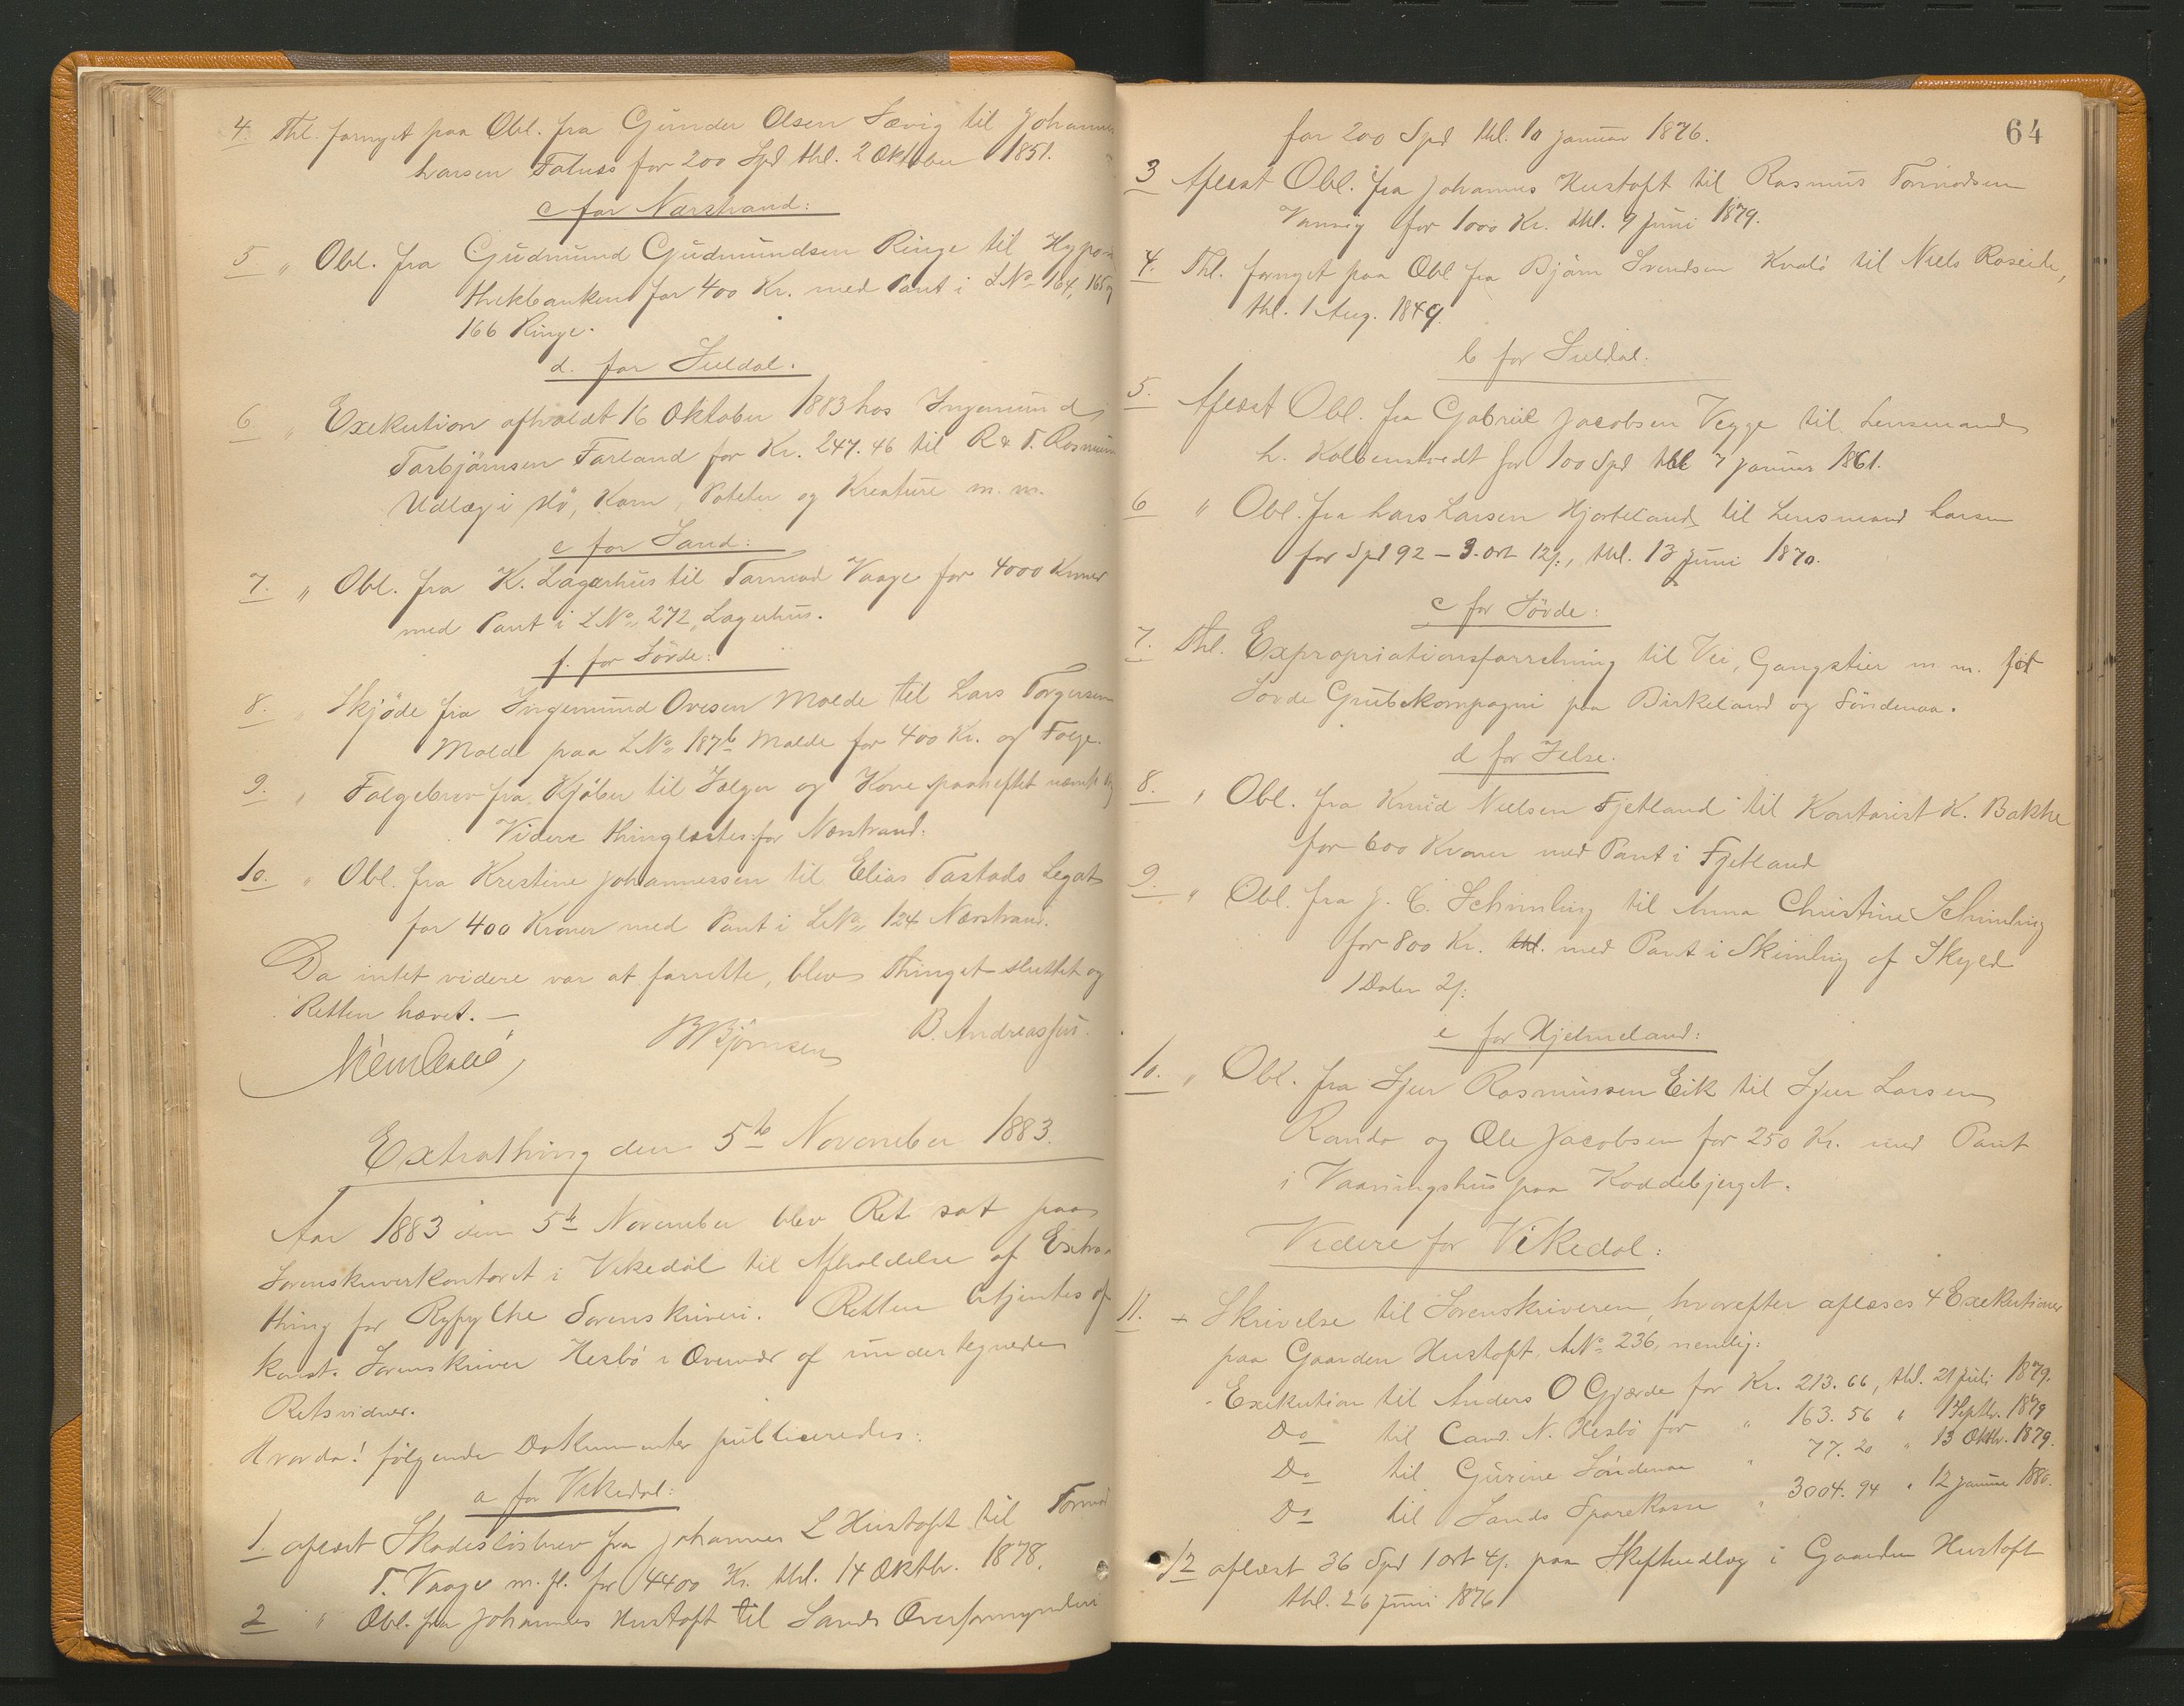 4. Thl. fornyet paa Obl. fra Gunder Olsen Sævig til Johannes
Larsen Fatnes for 200 Spd thl. 2 Oktober 1851.
c for Nærstrand:
5 " Obl. fra Gudmund Gudmundsen Ringe til Hypo-
thekbanken for 400 Kr. med Pant i LNo 164, 165 og
166 Ringe.
d. for Suldal.
6. " Exekution afholdt 16 Oktober 1883 hos Ingemund
Torbjörnsen Farland for Kr. 247.46 til R & T. Rosmun
Udlæg i Hö, Korn, Poteter og Kreature m. m.
e for Sand:
7. " Obl. fra K. Lagerhus til Tormod Vaage for 4000 Kroner
med Pant i LNo 272, Lagerhus.
f. for Sövde:
8. " Skjöde fra Ingemund Ovesen Molde til Lars Torgersen
Molde paa LNo 187b Molde for 400 Kr. og Folge.
9. " Folgebrev fra Kjöber til Sælger og Kone paaheftet nævnte
Videre thinglæstes for Nærstrand:
10. " Obl. fra Kristine Johannessen til Elias Tastads Legat
for 400 Kroner med Pant i LNo 124 Nærstrand.
Da intet videre var at forrette, blev Thinget sluttet og
Retten hævet. —
B Björnsen B. Andreassen.
Extrathing den 5te November 1883.
Aar 1883 den 5te November blev Ret sat paa
Sorenskriverkontoret i Vikedal til Afholdelse af Extra-
thing for Ryfylke Sorenskriveri. Retten betjentes af
konst. Sorenskriver Hesbö i Overvær af undertegnede
Retsvidner.
Hvorda! følgende Dokumenter publiceredes:
a for Vikedal:
1. aflæst Skadeslösbrev fra Johannes L Hustoft til Tormod
T. Vaage m. fl. for 4400 Kr. thl. 14 Oktbr. 1878.
2 " Obl. fra Johannes Hustoft til Sands Overformynderi
64
for 200 Spd thl. 10 Januar 1876.
3 Aflæst Obl. fra Johannes Hustoft til Rasmus Tormodsen
Vansig for 1000 Kr. thl. 9 Juni 1879.
4. Thl. fornyet paa Obl fra Björn Svendsen Kvalö til Niels Roseide,
thl. 1 Aug. 1849.
b for Suldal:
5. Aflæst Obl. fra Gabriel Jacobsen Vegge til Lensmand
L. Kolbenstvedt for 100 Spd thl 7 Januar 1861.
6 " Obl. fra Lars Larsen Hjorteland til Lensmand Larsen
for Spd 92 – 3. ort 12ʃ., thl. 13 Juni 1870.
c for Sövde:
7. Thl. Expropriationsforretning til Vei, Gangstier m. m. for
Sovde Grubekompagni paa Birkeland og Söndenaa.
d for Jelse.
8. " Obl. fra Knud Nielsen Fjetland til Kontorist K. Bakke
for 600 Kroner med Pant i Fjetland
9. " Obl. fra J. C. Schimling til Anna Christine Schimling
for 800 Kr. thl. med Pant i Skimling af Skyld
1 Daler 2ʃ.
e for Hjelmeland:
10. " Obl. fra Sjur Rasmussen Eik til Sjur Larsen
Randö og Ole Jacobsen for 250 Kr. med Pant
i Vaaningshus paa Koddebjerget.
Videre for Vikedal:
11. Skrivelse til Sorenskriveren, hvorefter aflæses 4 Exekutioner
paa Gaarden Hustoft, LNo 236, nemlig:
Exekution til Anders O Gjærde for Kr. 213.66, thl. 21 Juli 1879.
Do til Cand. N. Hesbö for " 163.56 " 1 Septbr. 1879
Do til Gurine Söndenaa " 77.20 " 13 Oktbr. 1879.
Do til Sands Sparekasse " 3004.94 " 12 Januar 1880.
12 aflæst 36 Spd 1 ort 4ʃ. paa Skifteudlæg i Gaarden Hustoft
thl. 26 Juni 1876